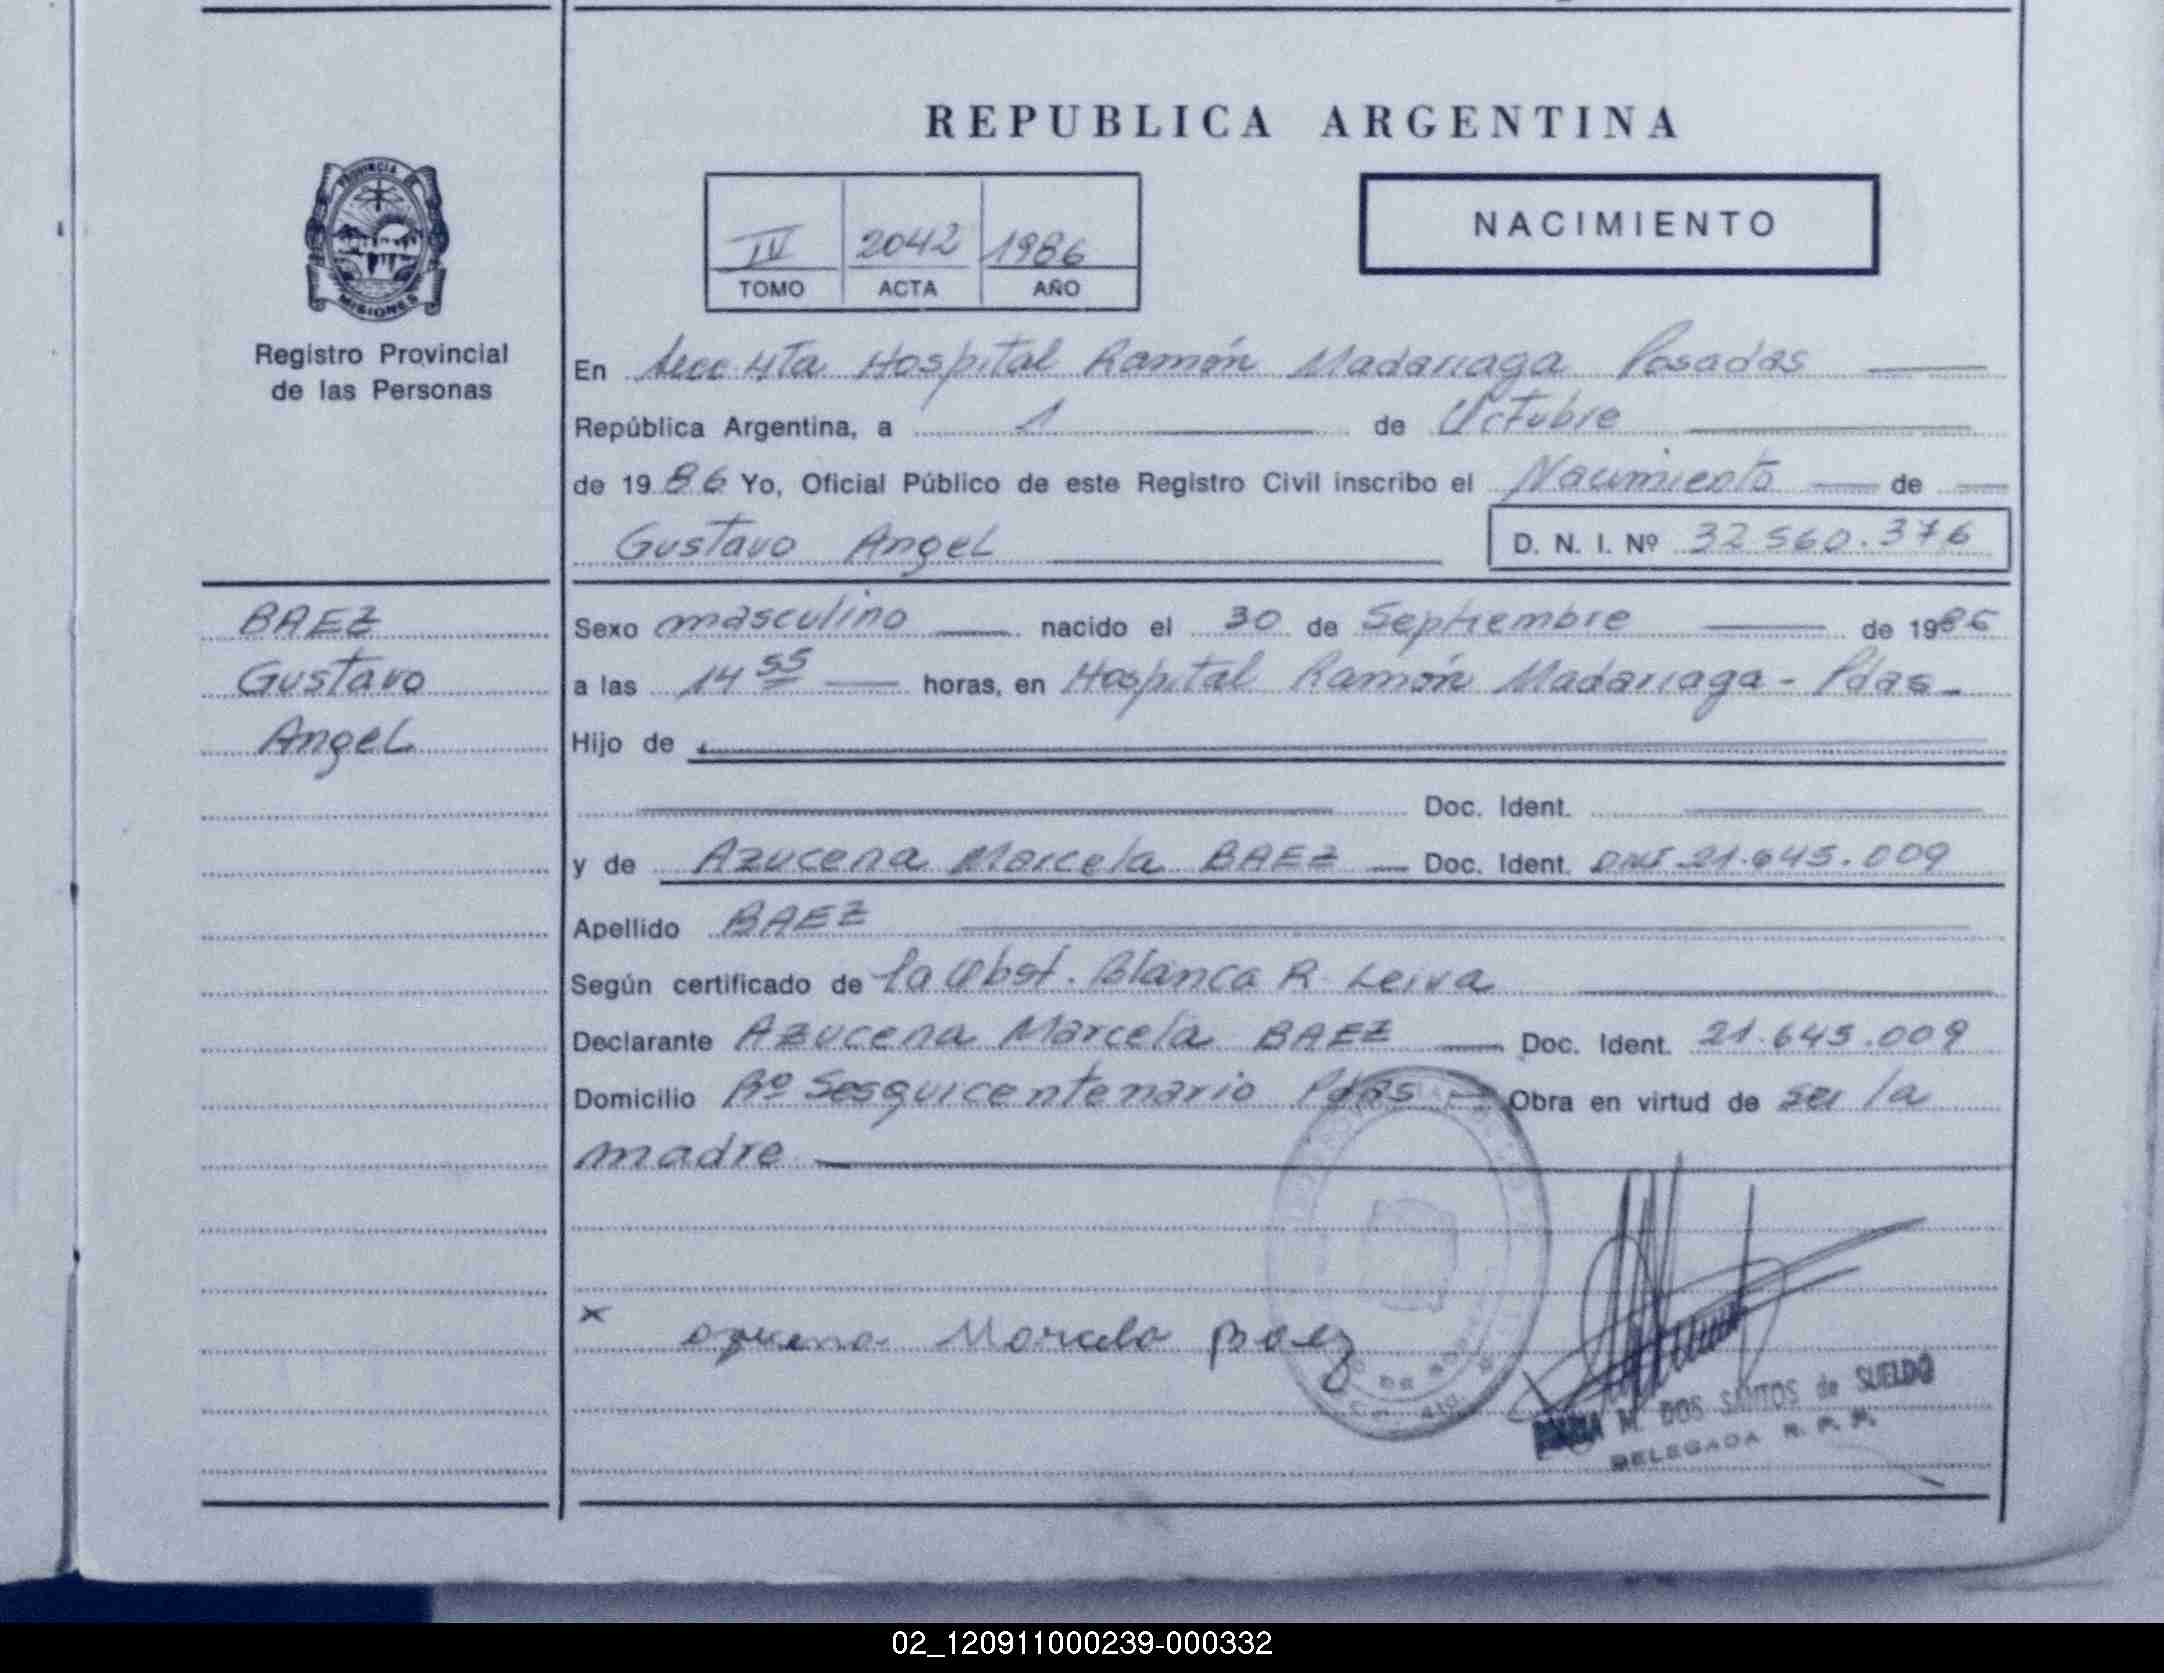 REPUBLICA ARGENTINA
PROVINCIA DE
MISIONES
Registro Provincial
de las Personas
IV 2042 1986
TOMO ACTA AÑO
NACIMIENTO
En Secc 4ta Hospital Ramón Madariaga Posadas
República Argentina, a 1 de Octubre
de 1986 Yo, Oficial Público de este Registro Civil inscribo el Nacimiento de
Gustavo Angel D. N. I. Nº 32560.376
BAEZ
Gustavo
Angel
Sexo masculino nacido el 30 de Septiembre de 1986
a las 14 55 horas, en Hospital Ramón Madariaga - Pdas-
Hijo de
Doc. Ident.
y de Azucena Marcela BAEZ Doc. Ident. DNI 21.645.009
Apellido BAEZ
Según certificado de la Obst. Blanca R Leiva
Declarante Azucena Marcela BAEZ Doc. Ident. 21.645.009
Domicilio Bº Sesquicentenario Pdas Obra en virtud de ser la
madre
x Marcela Baez
M. DOS SANTOS de SUELDO
DELEGADA R. P. P.
02_120911000239-000332